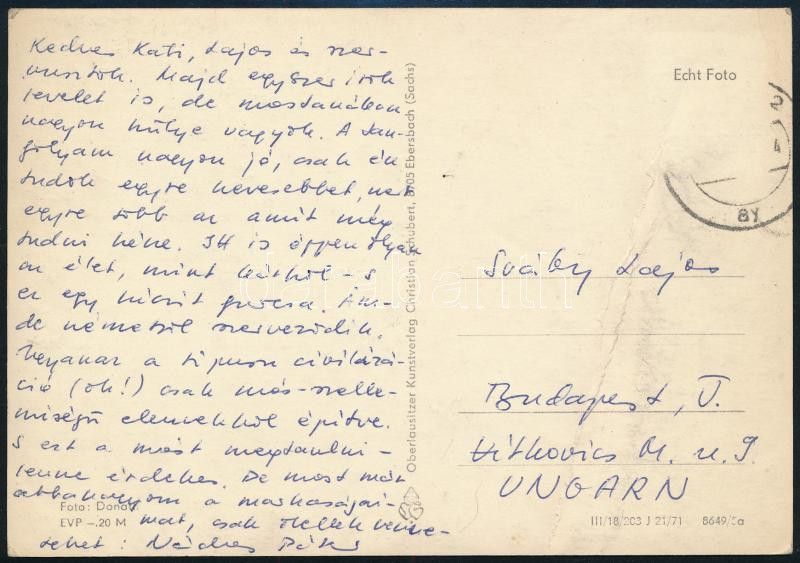 Kedves Kati, Lajos és szer-
vusztok. Majd egyszer írok
levelet is, de mostanában
nagyon hülye vagyok. A
nagyon jó, csak én
tudok egyre kevesebbet, mert
egyre több az amit még
tudni kéne. Itt is éppen olyan
az élet, mint - s
ez egy kicsit furcsa. Am-
de németből szerveződik.
Ugyanaz a típusú civilizá-
ció (óh!) csak más szelle-
miségű elemekből építve.
S ezt a most megtanulni
lenne érdekes. De most már
abbahagyom a marhaságai-
mat, csak
Nádas Péter
Foto: Donat
EVP –.20 M
Oberlausitzer Kunstverlag Christian Schubert, 8705 Ebersbach (Sachs)
Echt Foto
2
4
BY
Sváby Lajos
Budapest, V.
Vitkovics M. u. 9
UNGARN
III/18/203 J 21/71 8649/5a
darabanth